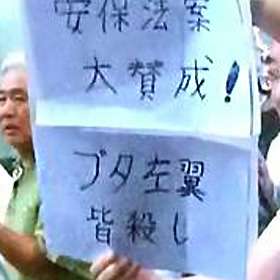 安保法案
大賛成!
ブタ左翼
皆殺し